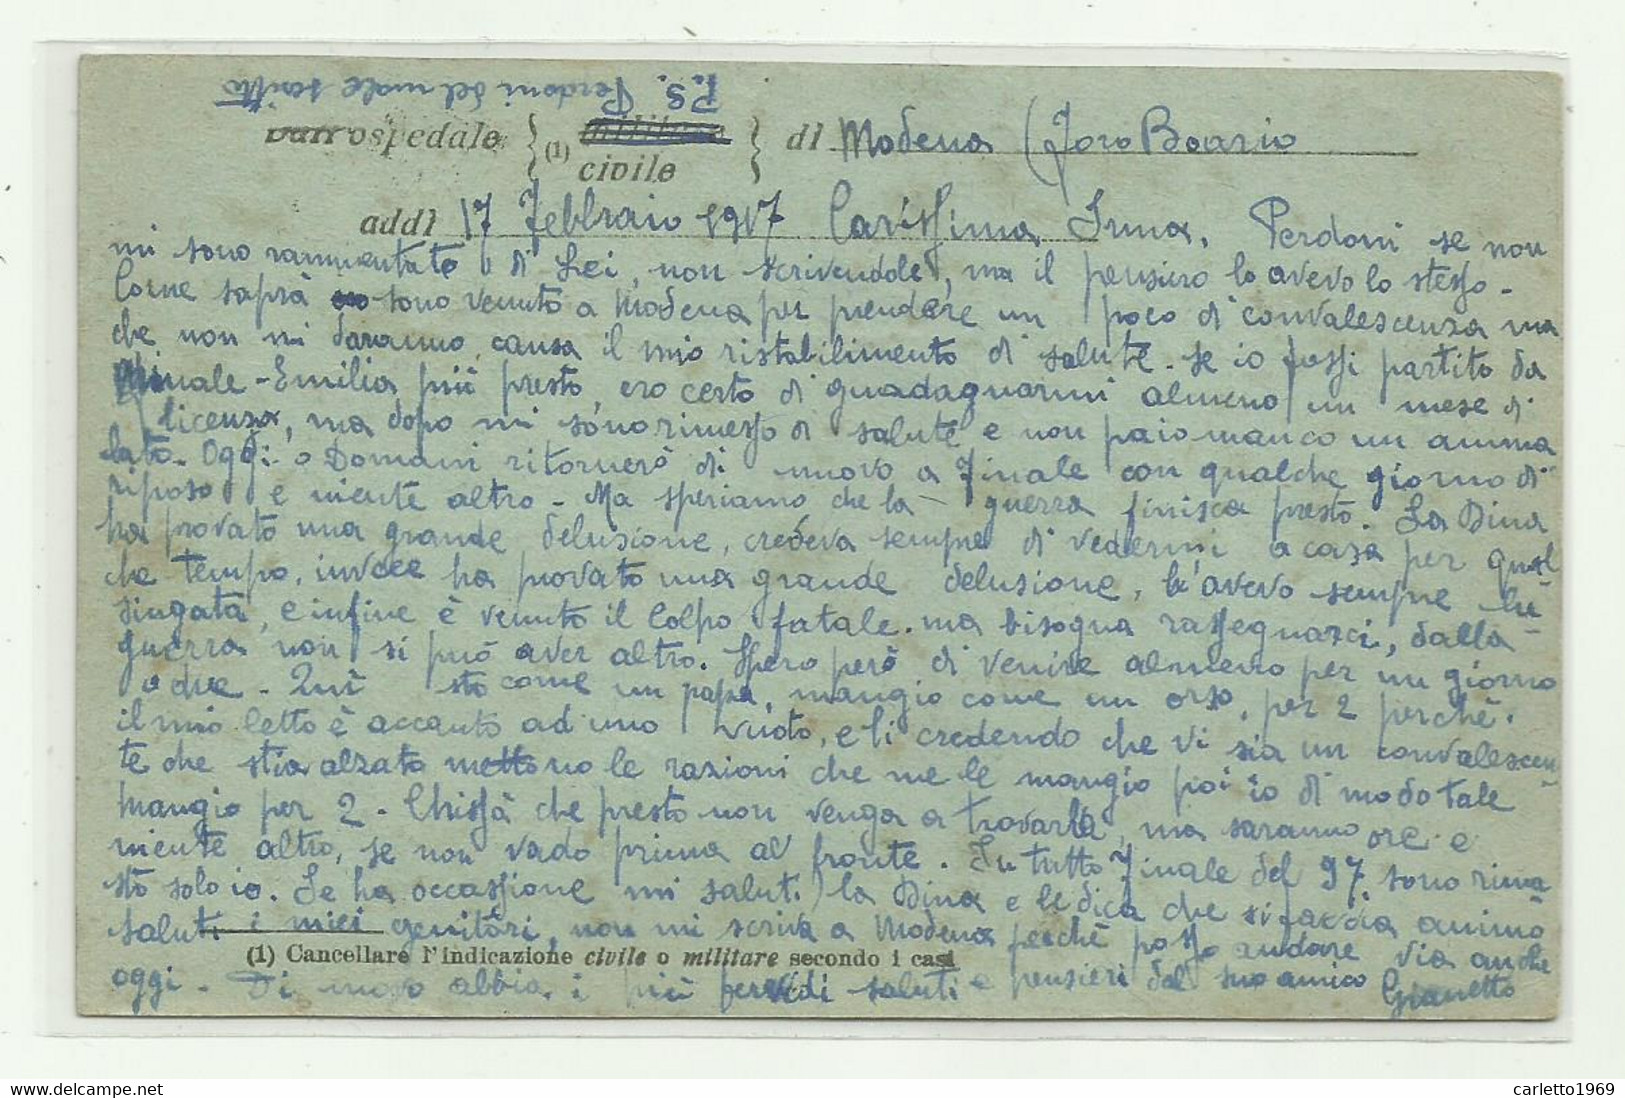 P.S. Perdoni del male scritto
Dall'ospedale (1) militare civile di Modena (Foro Boario
addì 17 Febbraio 1917 Carissima Irma, Perdoni se non
mi sono rammentato di Lei, non scrivendole, ma il pensiero lo avevo lo stesso -
Come saprà sono venuto a Modena per prendere un poco di convalescenza ma
che non mi daranno causa il mio ristabilimento di salute. Se io fossi partito da
Finale - Emilia più presto, ero certo di guadagnarmi almeno un mese di
licenza, ma dopo mi sono rimesso di salute e non paio manco un amma
lato. Oggi o Domani ritornerò di nuovo a Finale con qualche giorno di
riposo e niente altro - Ma speriamo che la guerra finisca presto. La Dina
ha provato una grande delusione, credeva sempre di vedermi a casa per qual
che tempo, invece ha provato una grande delusione, l'avevo sempre lu-
singata, e infine è venuto il Colpo fatale. ma bisogna rassegnarci, dalla
guerra non si può aver altro. Spero però di venire almeno per un giorno
o due - Qui sto come un papa, mangio come un orso, per 2 perchè.
il mio letto è accanto ad uno vuoto, e li credendo che vi sia un convalescen-
te che stia alzato mettono le razioni che me le mangio poi io di modo tale
mangio per 2 - Chissà che presto non venga a trovarla, ma saranno ore e
niente altro, se non vado prima al fronte. In tutto Finale del 97. sono rima
sto solo io. Se ha occassione mi saluti la Dina e le dica che si faccia animo
saluti i miei genitori, non mi scriva a Modena perchè posso andare via anche
(1) Cancellare l'indicazione civile o militare secondo i casi
oggi. Di nuovo abbia i più fervidi saluti e pensieri dal suo amico Gianetto
carletto1969